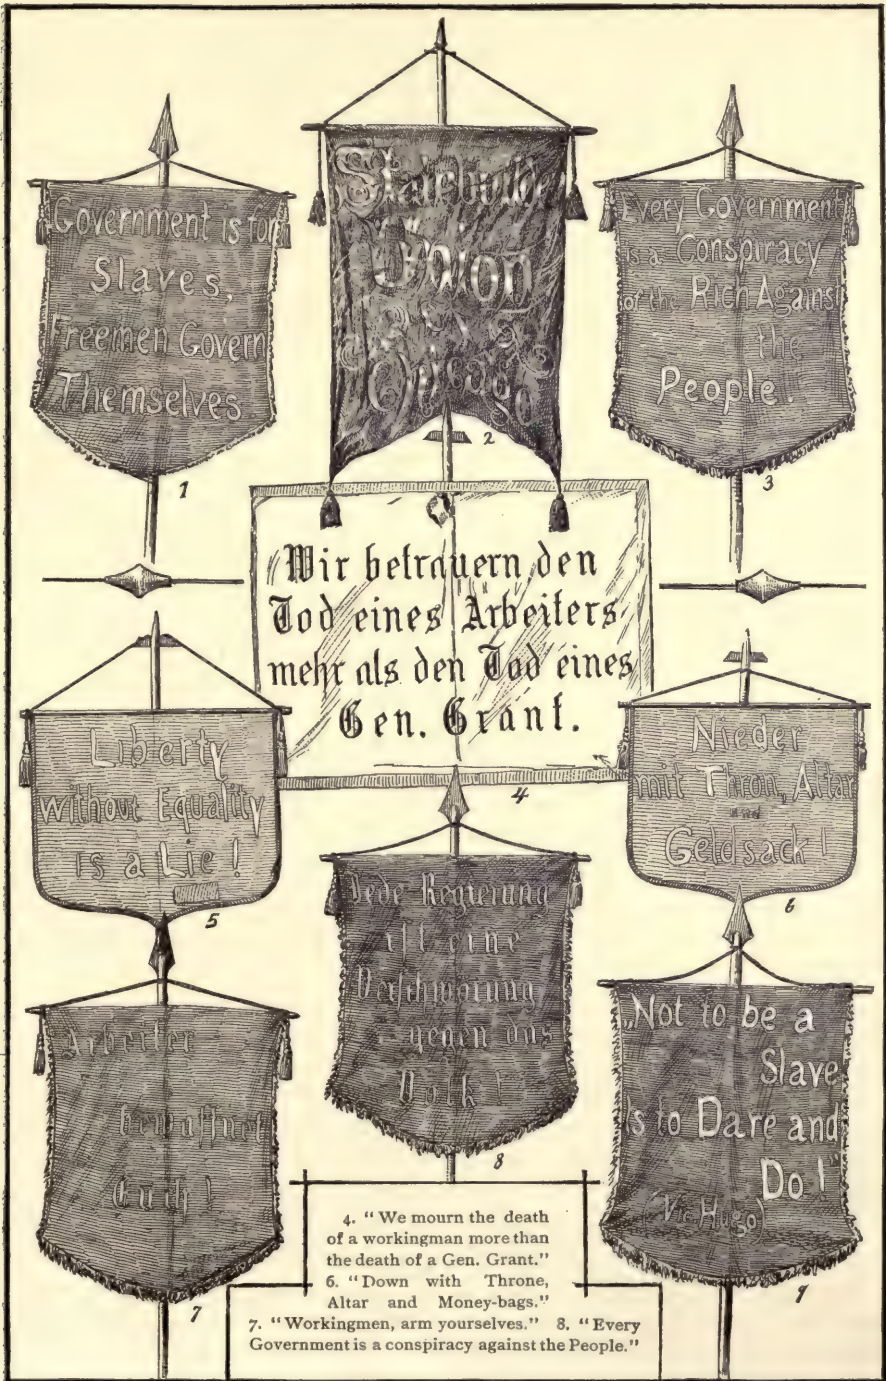 Government is for
Slaves,
Freemen Govern
Themselves.
1
Union
Chicago
2
Every Government
is a Conspiracy
of the Rich Against
the
People!
3
"Wir betrauern den
Tod eines Arbeiters
mehr als den Tod eines
Gen. Grant.
4
Liberty
without Equality
is a Lie!
5
Nieder
mit Thron, Altar
und
Geldsack!
6
Arbeiter
bewaffnet
Euch!
7
Jede Regierung
ist eine
Verschwörung
gegen das
Volk!
8
„Not to be a
Slave
Is to Dare and
Do!"
(Vic Hugo)
9
4. "We mourn the death
of a workingman more than
the death of a Gen. Grant."
6. "Down with Throne,
Altar and Money-bags."
7. "Workingmen, arm yourselves." 8. "Every
Government is a conspiracy against the People."